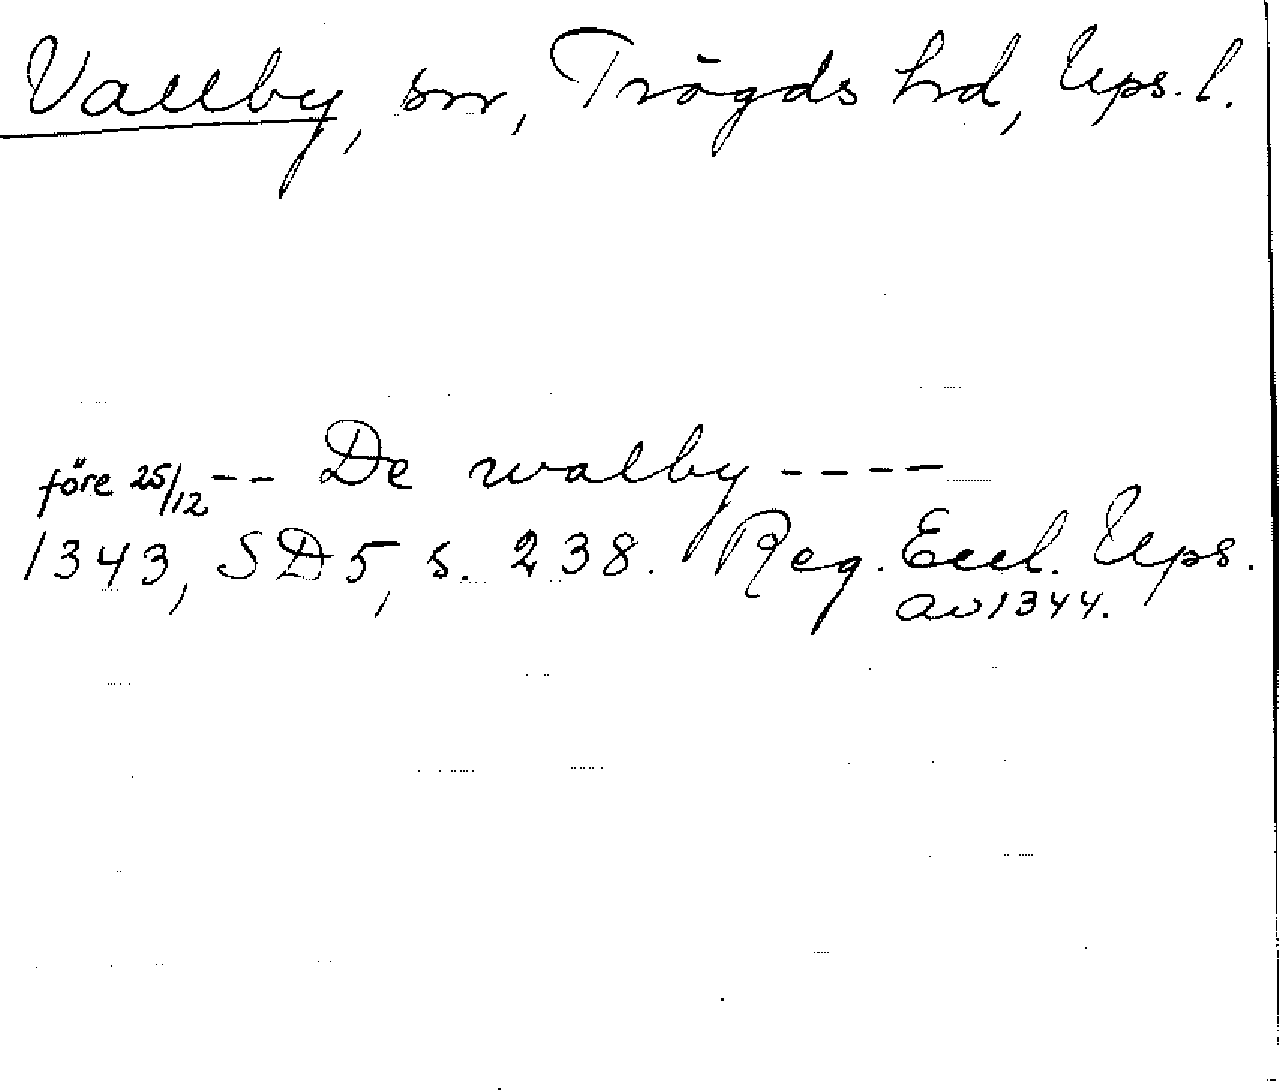 Vallby, sn, Trögds hd, Ups. l.
före 25/12 -- De walby ----
1343, SD5, s. 238. Reg. Eccl. Ups.
av 1344.